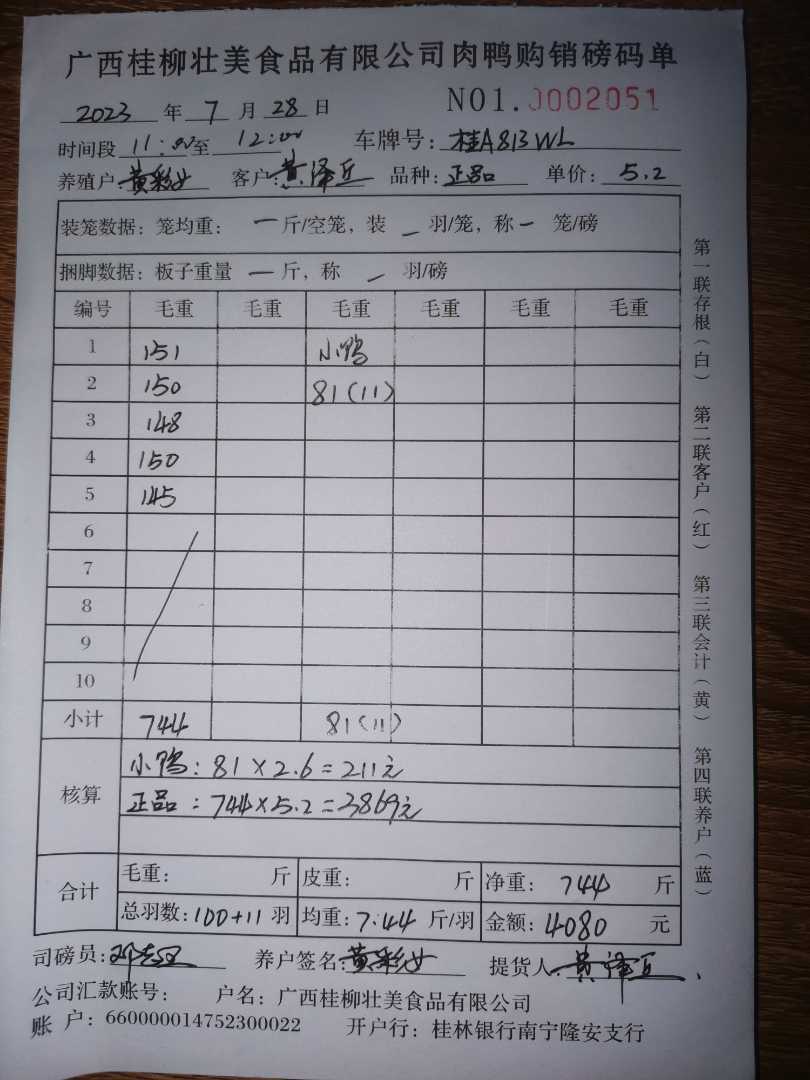 广西桂柳壮美食品有限公司肉鸭购销磅码单
2023 年 7 月 28 日 NO1.0002051
时间段 11:00 至 12:00 车牌号: 桂A813WL
养殖户: 黄彩女 客户: 黄泽丘 品种: 正品 单价: 5.2
装笼数据: 笼均重: 一 斤/空笼, 装 一 羽/笼, 称 一 笼/磅
捆脚数据: 板子重量 一 斤, 称 一 羽/磅
编号 毛重 毛重 毛重 毛重 毛重 毛重
1 151 小鸭
2 150 81(11)
3 148
4 150
5 145
6
7
8
9
10
小计 744 81(11)
核算
小鸭: 81×2.6=211元
正品: 744×5.2=3869元
合计
毛重: 斤 皮重: 斤 净重: 744 斤
总羽数: 100+11 羽 均重: 7.44 斤/羽 金额: 4080 元
司磅员: 养户签名: 黄彩女 提货人 黄泽丘
公司汇款账号: 户名: 广西桂柳壮美食品有限公司
账 户: 660000014752300022 开户行: 桂林银行南宁隆安支行
第一联存根(白) 第二联客户(红) 第三联会计(黄) 第四联养户(蓝)